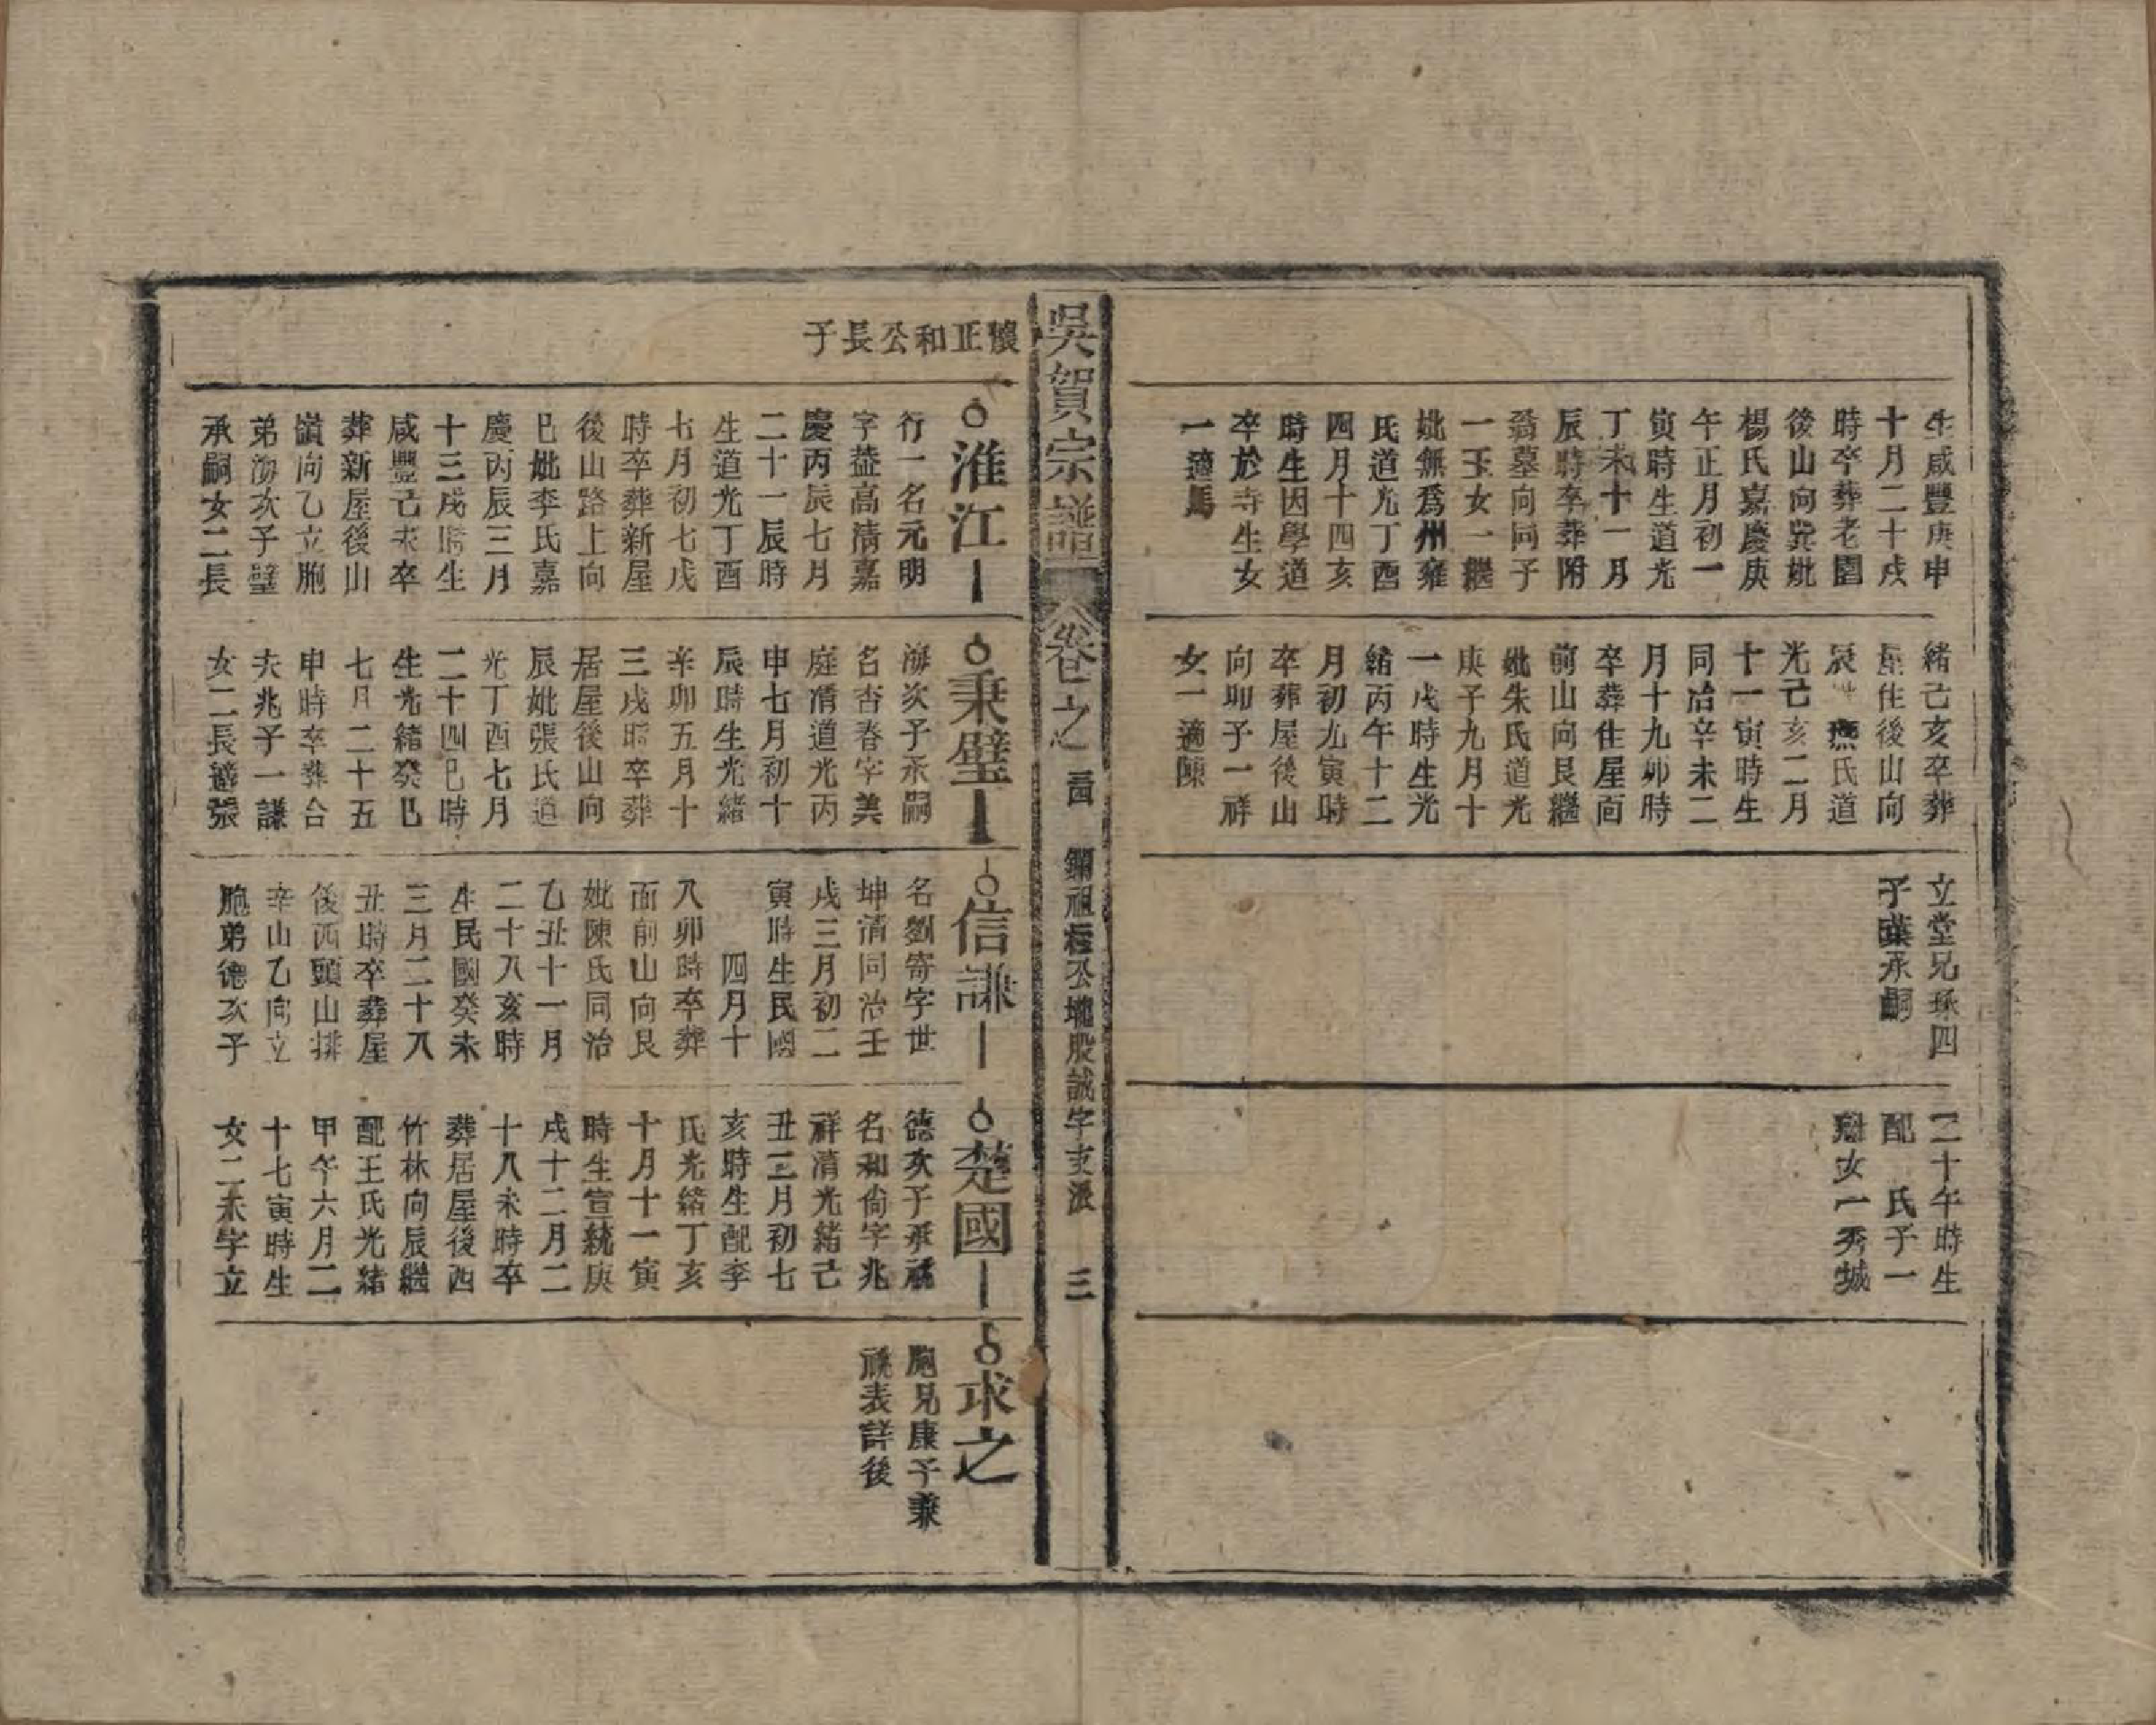 生咸豐庚申
十月二十戌
時卒葬老園
後山向巽妣
楊氏嘉慶庚
午正月初一
寅時生道光
丁未十一月
辰時卒葬附
翁墓向同子
一玉女一繼
妣無爲州雍
氏道光丁酉
四月十四亥
時生因學道
卒於寺生女
一適馬
緒己亥卒葬
屋住後山向
辰 氏道
光己亥二月
十一寅時生
同治辛未二
月十九卯時
卒葬住屋面
前山向艮繼
妣朱氏道光
庚子九月十
一戌時生光
緒丙午十二
月初九寅時
卒葬屋後山
向卯子一祥
女一適陳
立堂兄孫四
子 承嗣
二十午時生
配 氏子一
女一秀城
吳賀宗譜
卷之 公 股誠字支派 三
正和公長子
淮江
行一名元明
字益高清嘉
慶丙辰七月
二十一辰時
生道光丁酉
七月初七戌
時卒葬新屋
後山路上向
巳妣李氏嘉
慶丙辰三月
十三戌時生
咸豐己未卒
葬新屋後山
嶺向乙立胞
弟海次子璧
承嗣女二長
秉璧
海次子承嗣
名杏春字美
庭清道光丙
申七月初十
辰時生光緒
辛卯五月十
三戌時卒葬
居屋後山向
辰妣張氏道
光丁酉七月
二十四巳時
生光緒癸巳
七月二十五
申時卒葬合
夫兆子一謙
女二長適張
信謙
名劉寄字世
坤清同治壬
戌三月初二
寅時生民國
四月十
八卯時卒葬
面前山向艮
妣陳氏同治
乙丑十一月
二十八亥時
生民國癸未
三月二十八
丑時卒葬屋
後西頭山排
辛山乙向立
胞弟德次子
楚國
德次子承祧
名和尚字兆
祥清光緒己
丑三月初七
亥時生配李
氏光緒丁亥
十月十一寅
時生宣統庚
戌十二月二
十八未時卒
葬居屋後西
竹林向辰繼
配王氏光緒
甲午六月二
十七寅時生
女二未字立
求之
胞兄康子兼
祧表詳後